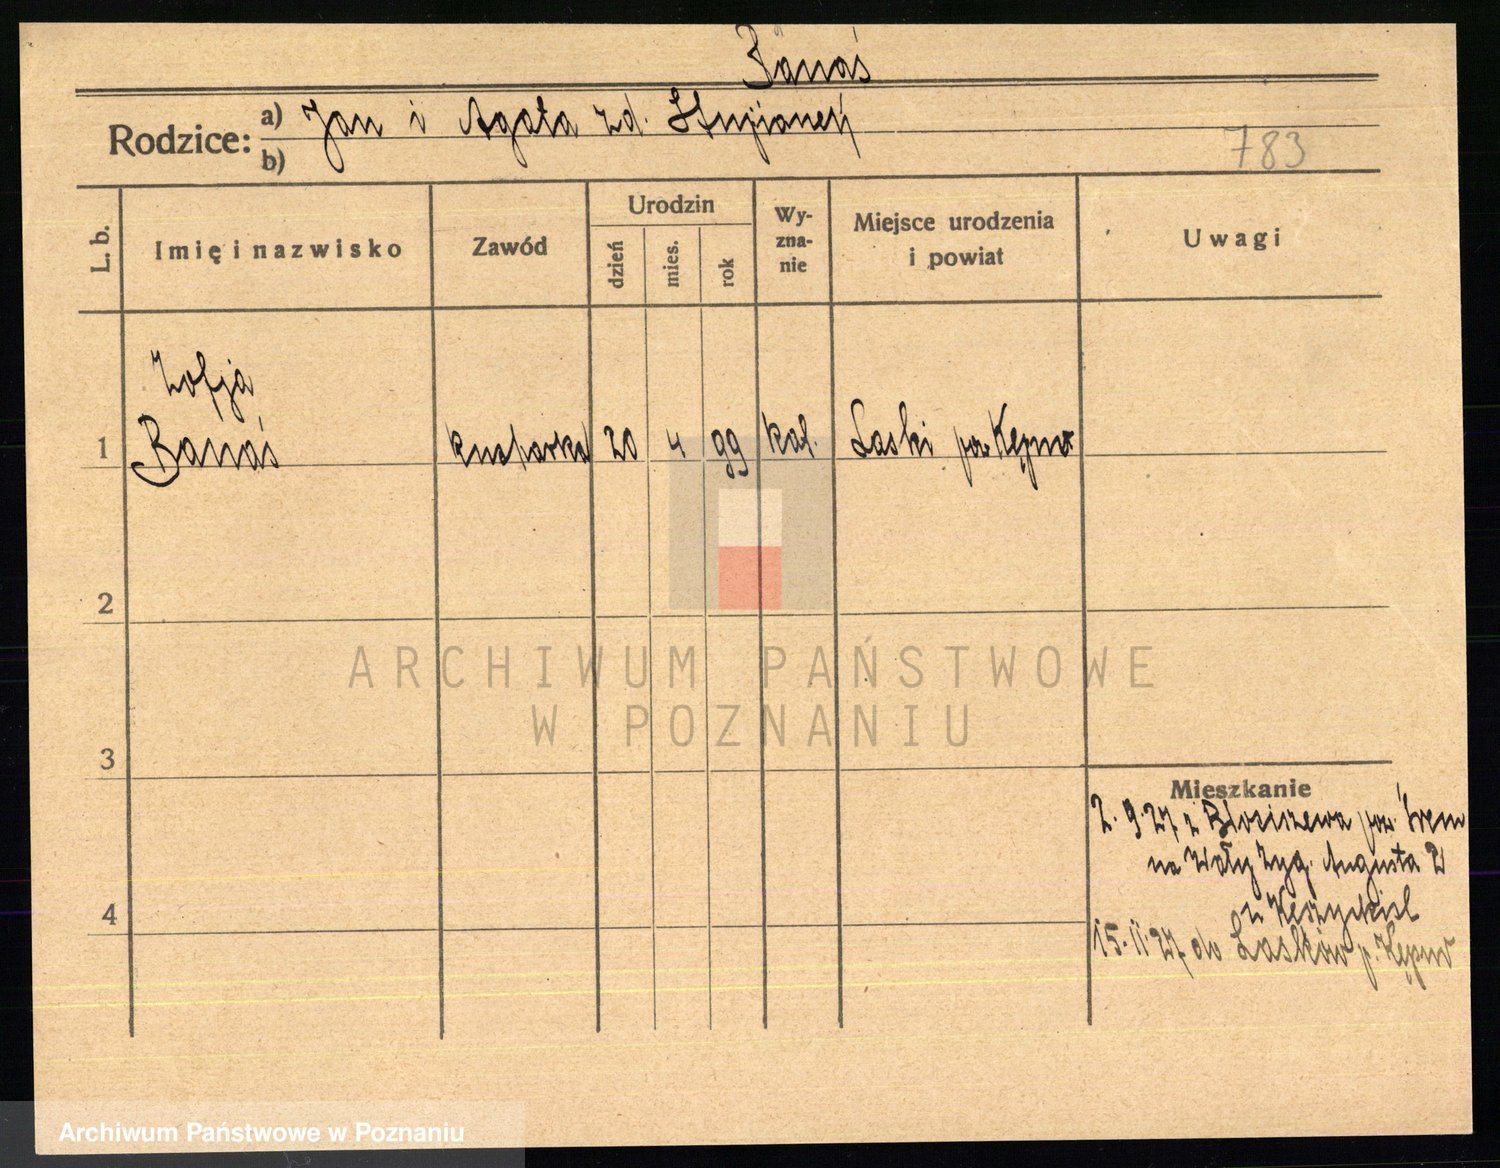 Banaś
Rodzice: a) Jan i Agata zd.
b)
783
L. b.
Imię i nazwisko
Zawód
Urodzin
dzień
mies.
rok
Wy-
zna-
nie
Miejsce urodzenia
i powiat
Uwagi
Zofja
1 Banaś kucharka 20 4 99 kat. Laski pow Kępno
2
ARCHIWUM PAŃSTWOWE
W POZNANIU
3
Mieszkanie
2.9.27 z Błociszewa pow. Śrem
na Wały Zyg. Augusta 2
u
4
15.11.27 do Lasków p. Kępno
Archiwum Państwowe w Poznaniu